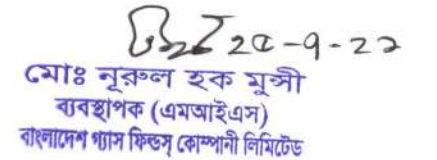 ২৫-৭-২২
মোঃ নূরুল হক মুন্সী
ব্যবস্থাপক (এমআইএস)
বাংলাদেশ গ্যাস ফিল্ডস্ কোম্পানী লিমিটেড